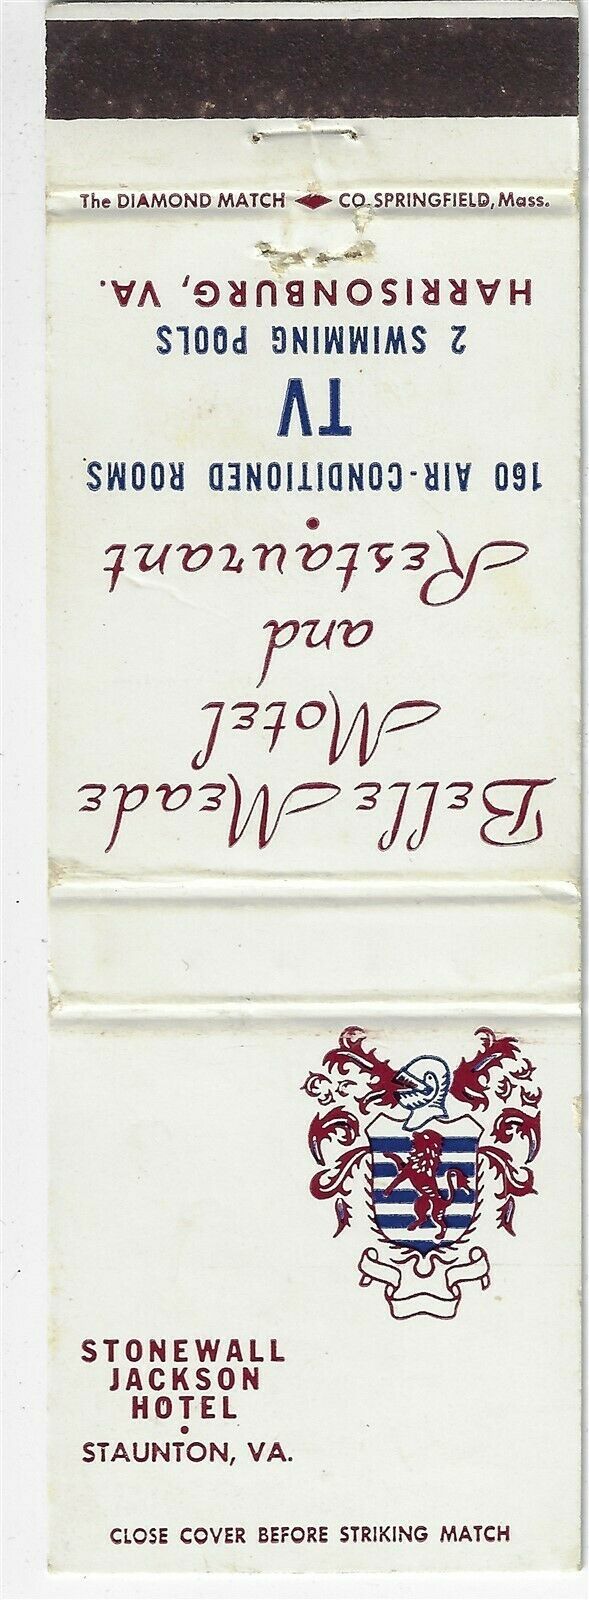 The DIAMOND MATCH CO. SPRINGFIELD, Mass.
Belle Meade
Motel
and
Restaurant
160 AIR-CONDITIONED ROOMS
TV
2 SWIMMING POOLS
HARRISONBURG, VA.
STONEWALL
JACKSON
HOTEL
•
STAUNTON, VA.
CLOSE COVER BEFORE STRIKING MATCH